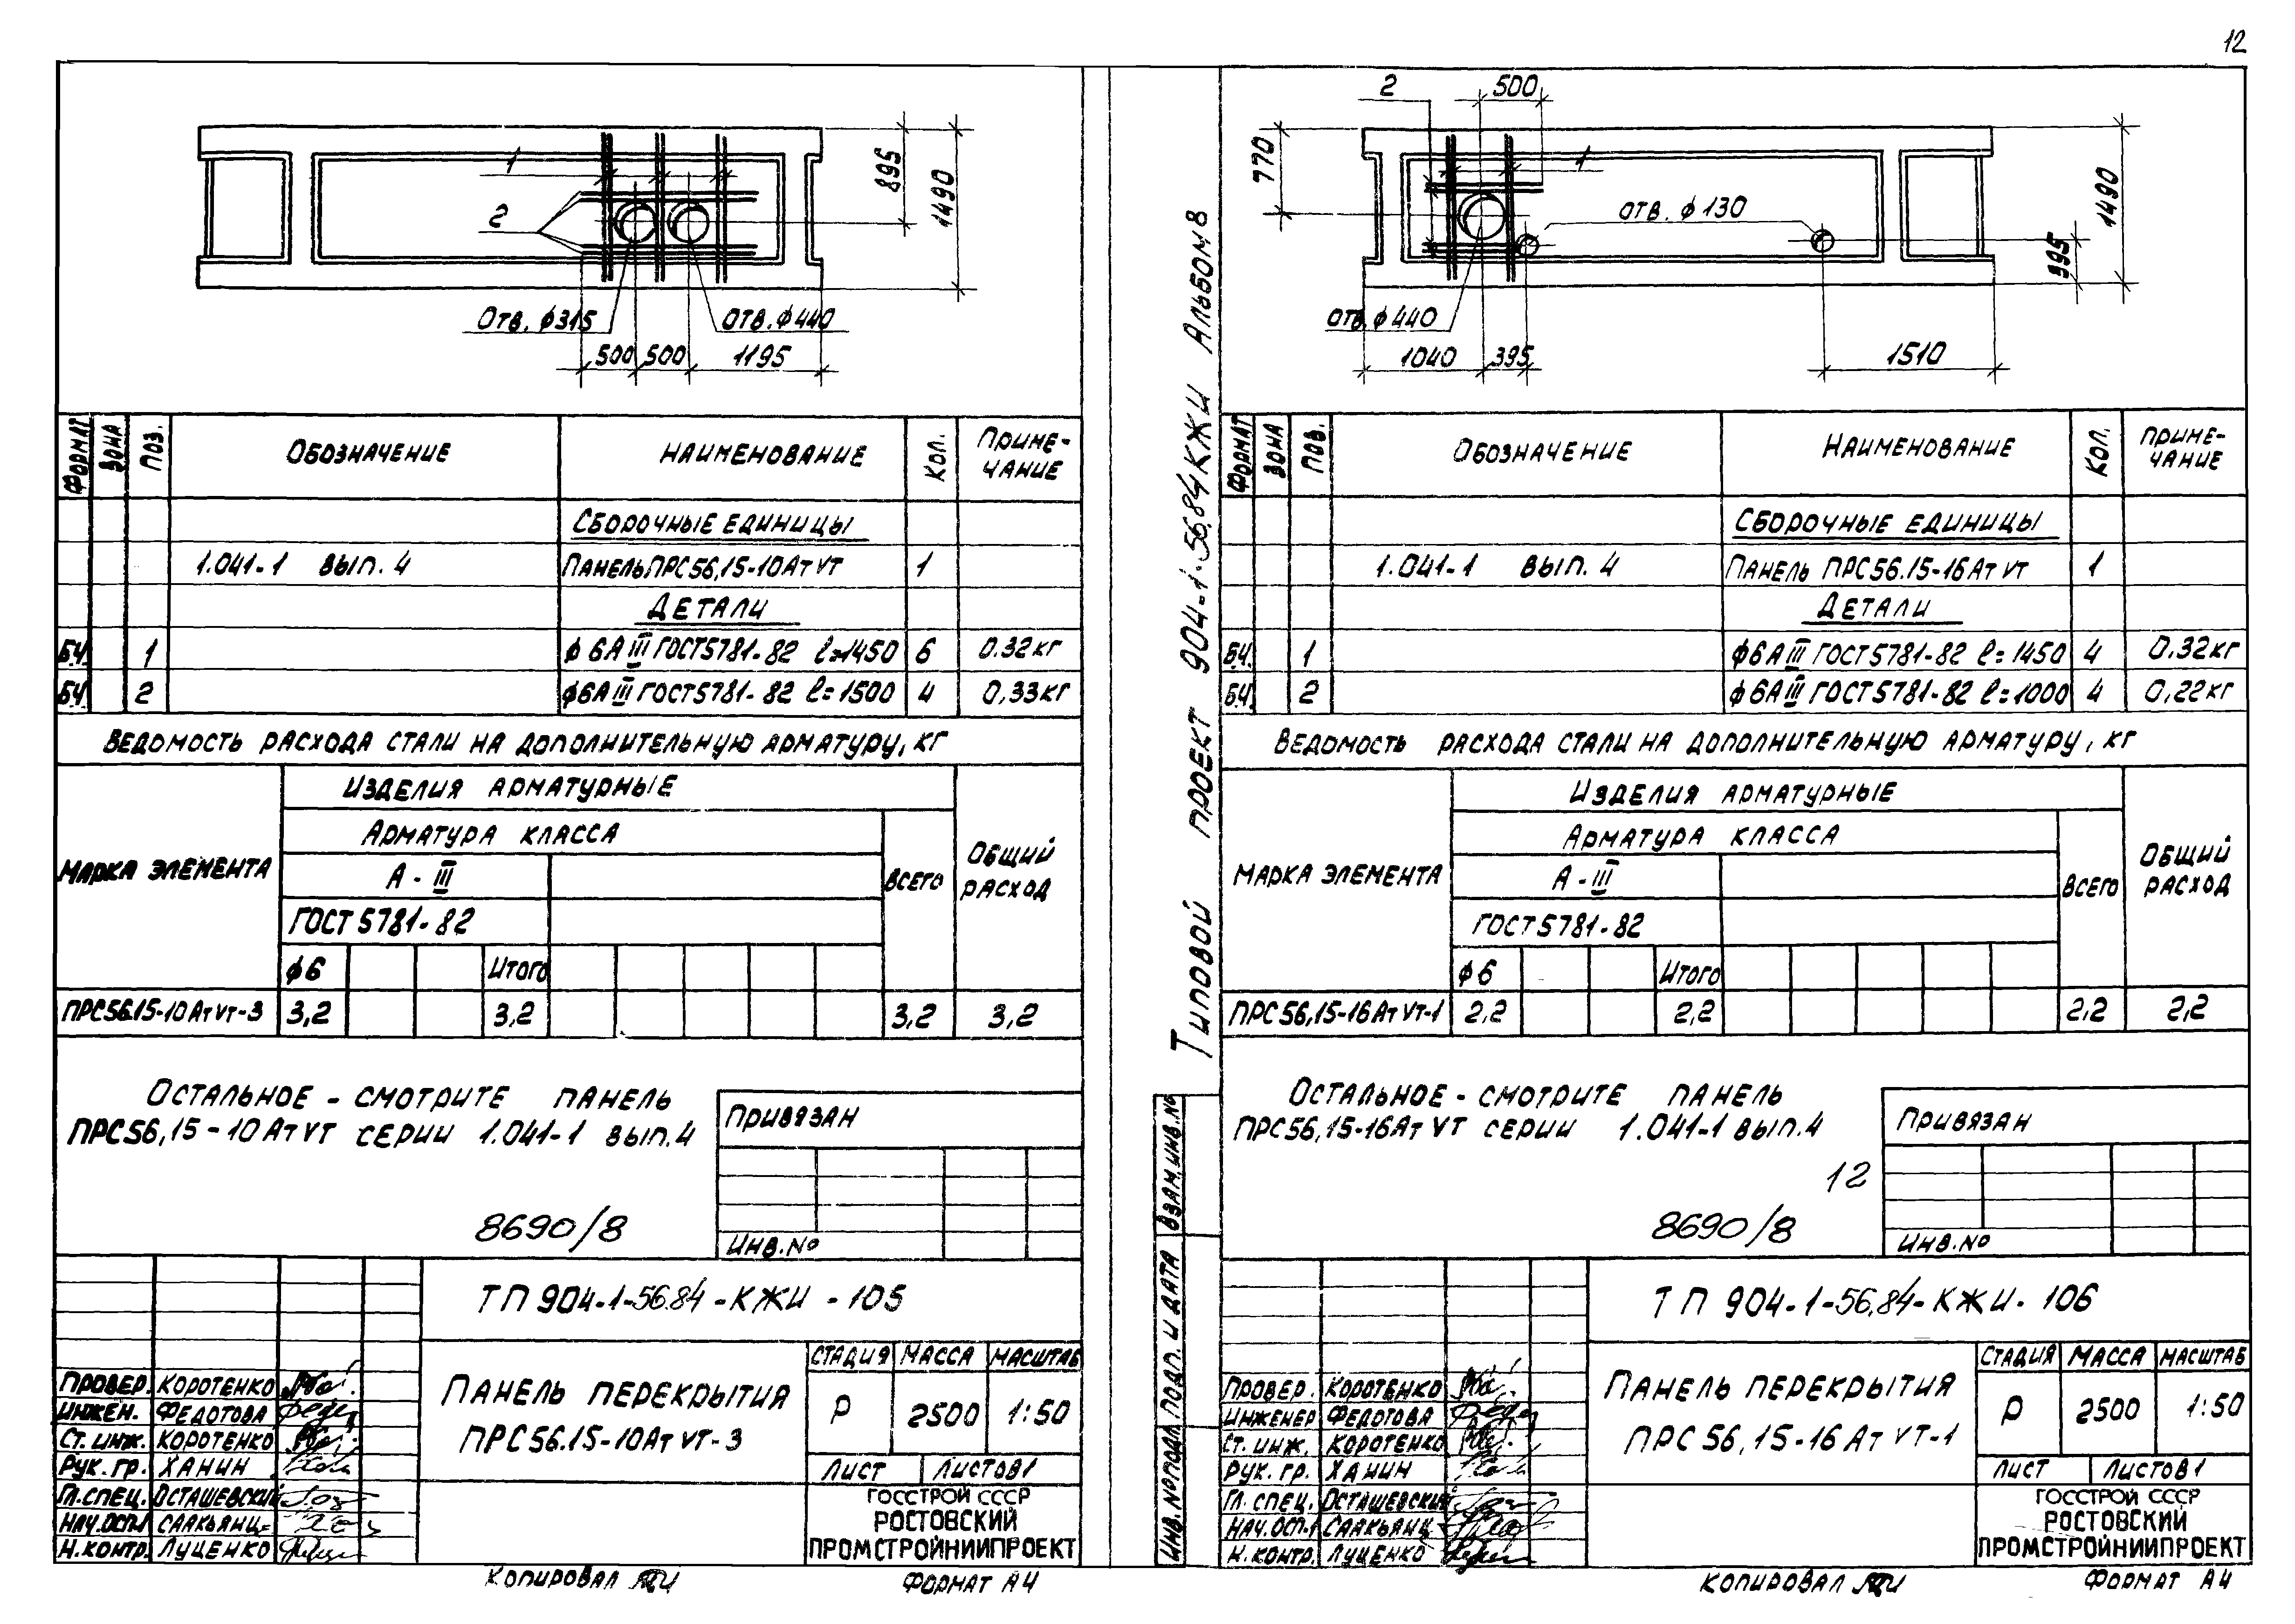 12
1
2
895
1490
Отв. ф315
Отв. ф440
500 500 1195
Формат Зона Поз. Обозначение Наименование Кол. Приме-
чание
Сборочные единицы
1.041-1 вып. 4 Панель ПРС56,15-10АтVТ 1
Детали
Б.Ч. 1 ф6АIII ГОСТ5781-82 ℓ=1450 6 0.32кг
Б.Ч. 2 ф6АIII ГОСТ5781-82 ℓ=1500 4 0,33кг
Ведомость расхода стали на дополнительную арматуру, кг
Изделия арматурные
Арматура класса
Марка элемента А-III Всего Общий
расход
ГОСТ 5781-82
ф6 Итого
ПРС56.15-10АтVТ-3 3,2 3,2 3,2 3,2
Остальное - смотрите панель
ПРС56,15-10АтVТ серии 1.041-1 вып.4
Привязан
8690/8
Инв.№
ТП 904-1-56.84-КЖИ-105
Панель перекрытия
ПРС56.15-10АтVТ-3
Стадия Масса Масштаб
Р 2500 1:50
Лист Листов 1
Провер. Коротенко
Инжен. Федотова
Ст. инж. Коротенко
Рук. гр. Ханин
Гл. спец. Осташевский
Нач. ОСП-1 Саакьянц
Н. контр. Луценко
ГОССТРОЙ СССР
РОСТОВСКИЙ
ПРОМСТРОЙНИИПРОЕКТ
Копировал
Формат А4
Типовой проект 904-1-56.84 КЖИ Альбом 8
Взам. инв. №
Подп. и дата
Инв. № подл.
2
500
770
1
отв. ф130
1490
395
отв. ф440
1040 395 1510
Формат Зона Поз. Обозначение Наименование Кол. Приме-
чание
Сборочные единицы
1.041-1 вып. 4 Панель ПРС56.15-16АтVТ 1
Детали
Б.Ч. 1 ф6АIII ГОСТ5781-82 ℓ=1450 4 0,32кг
Б.Ч. 2 ф6АIII ГОСТ5781-82 ℓ=1000 4 0,22кг
Ведомость расхода стали на дополнительную арматуру, кг
Изделия арматурные
Арматура класса
Марка элемента А-III Всего Общий
расход
ГОСТ 5781-82
ф6 Итого
ПРС56,15-16АтVТ-1 2,2 2,2 2,2 2,2
Остальное - смотрите панель
ПРС56,15-16АтVТ серии 1.041-1 вып.4
12
Привязан
8690/8
Инв.№
ТП 904-1-56,84-КЖИ-106
Панель перекрытия
ПРС56,15-16АтVТ-1
Стадия Масса Масштаб
Р 2500 1:50
Лист Листов 1
Провер. Коротенко
Инженер Федотова
Ст. инж. Коротенко
Рук. гр. Ханин
Гл. спец. Осташевский
Нач. ОСП-1 Саакьянц
Н. контр. Луценко
ГОССТРОЙ СССР
РОСТОВСКИЙ
ПРОМСТРОЙНИИПРОЕКТ
Копировал
Формат А4